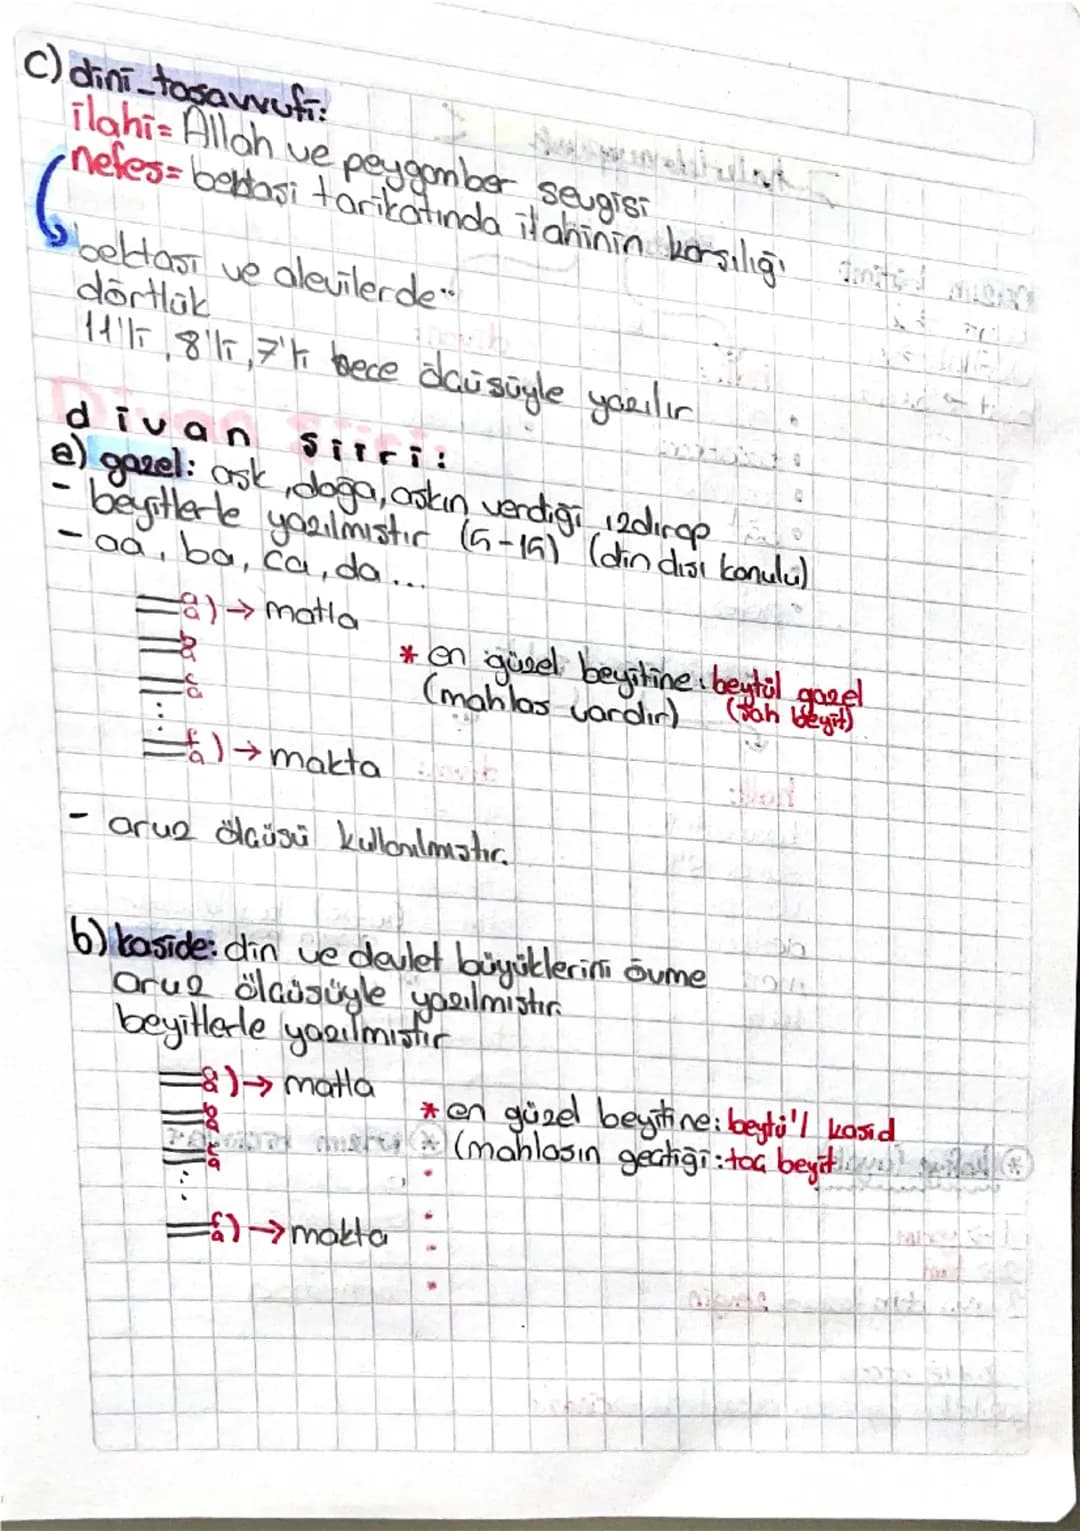 c) dini_tasavvufi:
ilahi= Allah ve peygamber sevgisi
nefes= bektaşi tarikatında ilahinin karşılığı
bektaşi ve alevilerde..
dörtlük
11'li, 8'li, 7'li hece ölçüsüyle yazılır
divan şiiri:
a) gazel: aşk, doğa, aşkın verdiği ızdırap
- beyitlerle yazılmıştır (5-15) (din dışı konulu)
- aa, ba, ca, da...
a a) → matla
b a
* en güzel beyitine: beytül gazel
c a
(mahlas vardır) (şah beyit)
f a) → makta
- aruz ölçüsü kullanılmıştır.
b) kaside: din ve devlet büyüklerini övme
aruz ölçüsüyle yazılmıştır.
beyitlerle yazılmıştır
a a) → matla
b a
* en güzel beyitine: beytü'l kasid
c a
(mahlasın geçtiği: taç beyit
f a) → makta